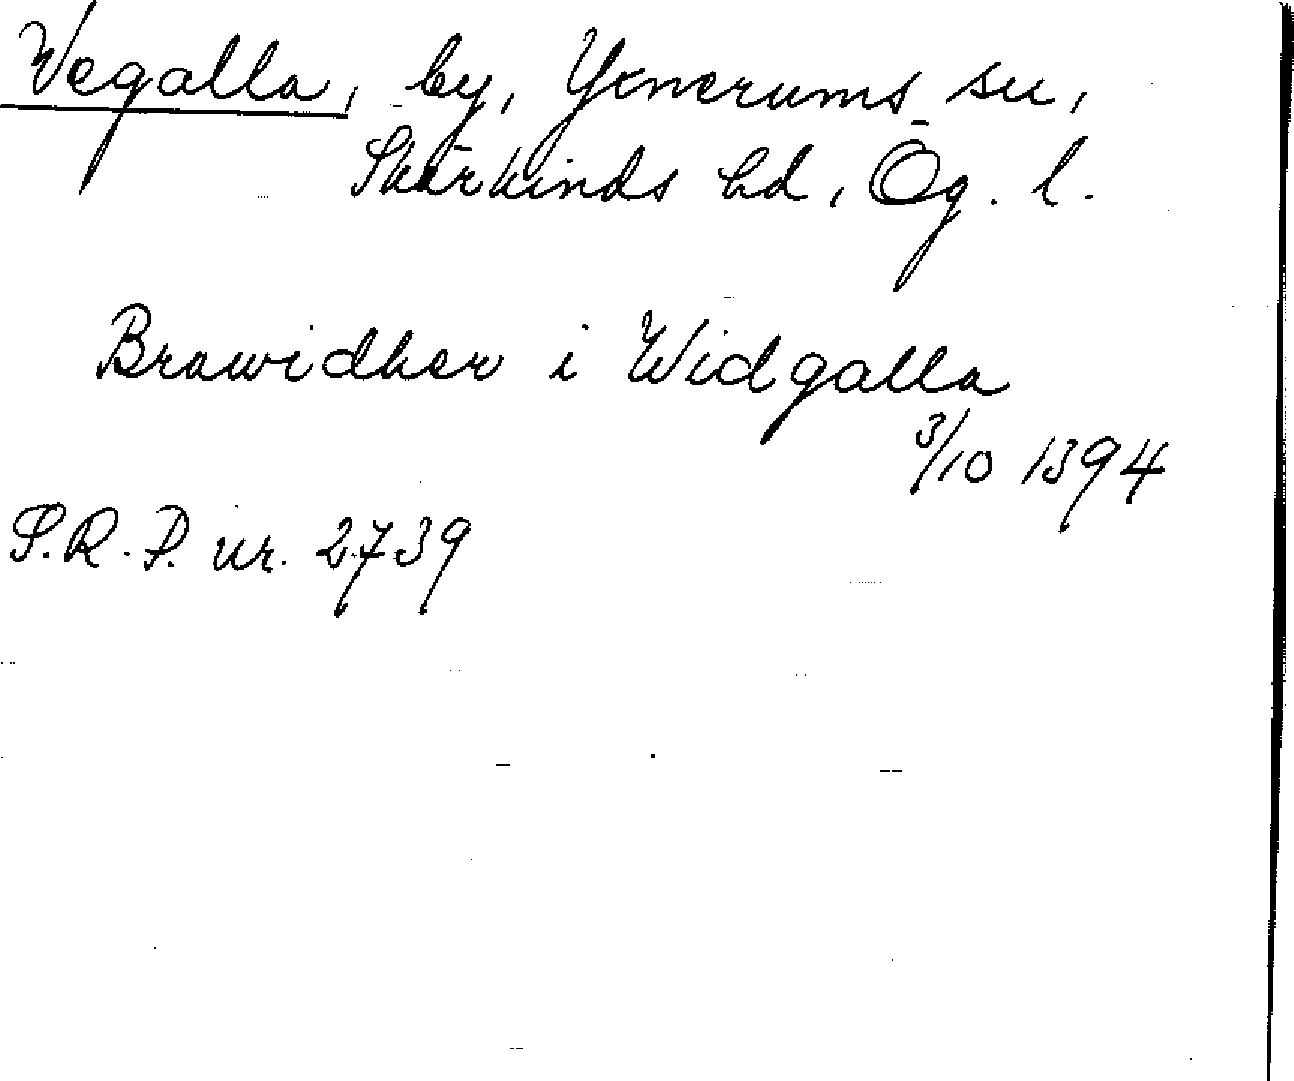 Vegalla, by, Yxnerums sn,
Skärkinds hd, Ög. l.
Brawidher i Widgalla
3/10 1394
S.R.P. nr. 2739